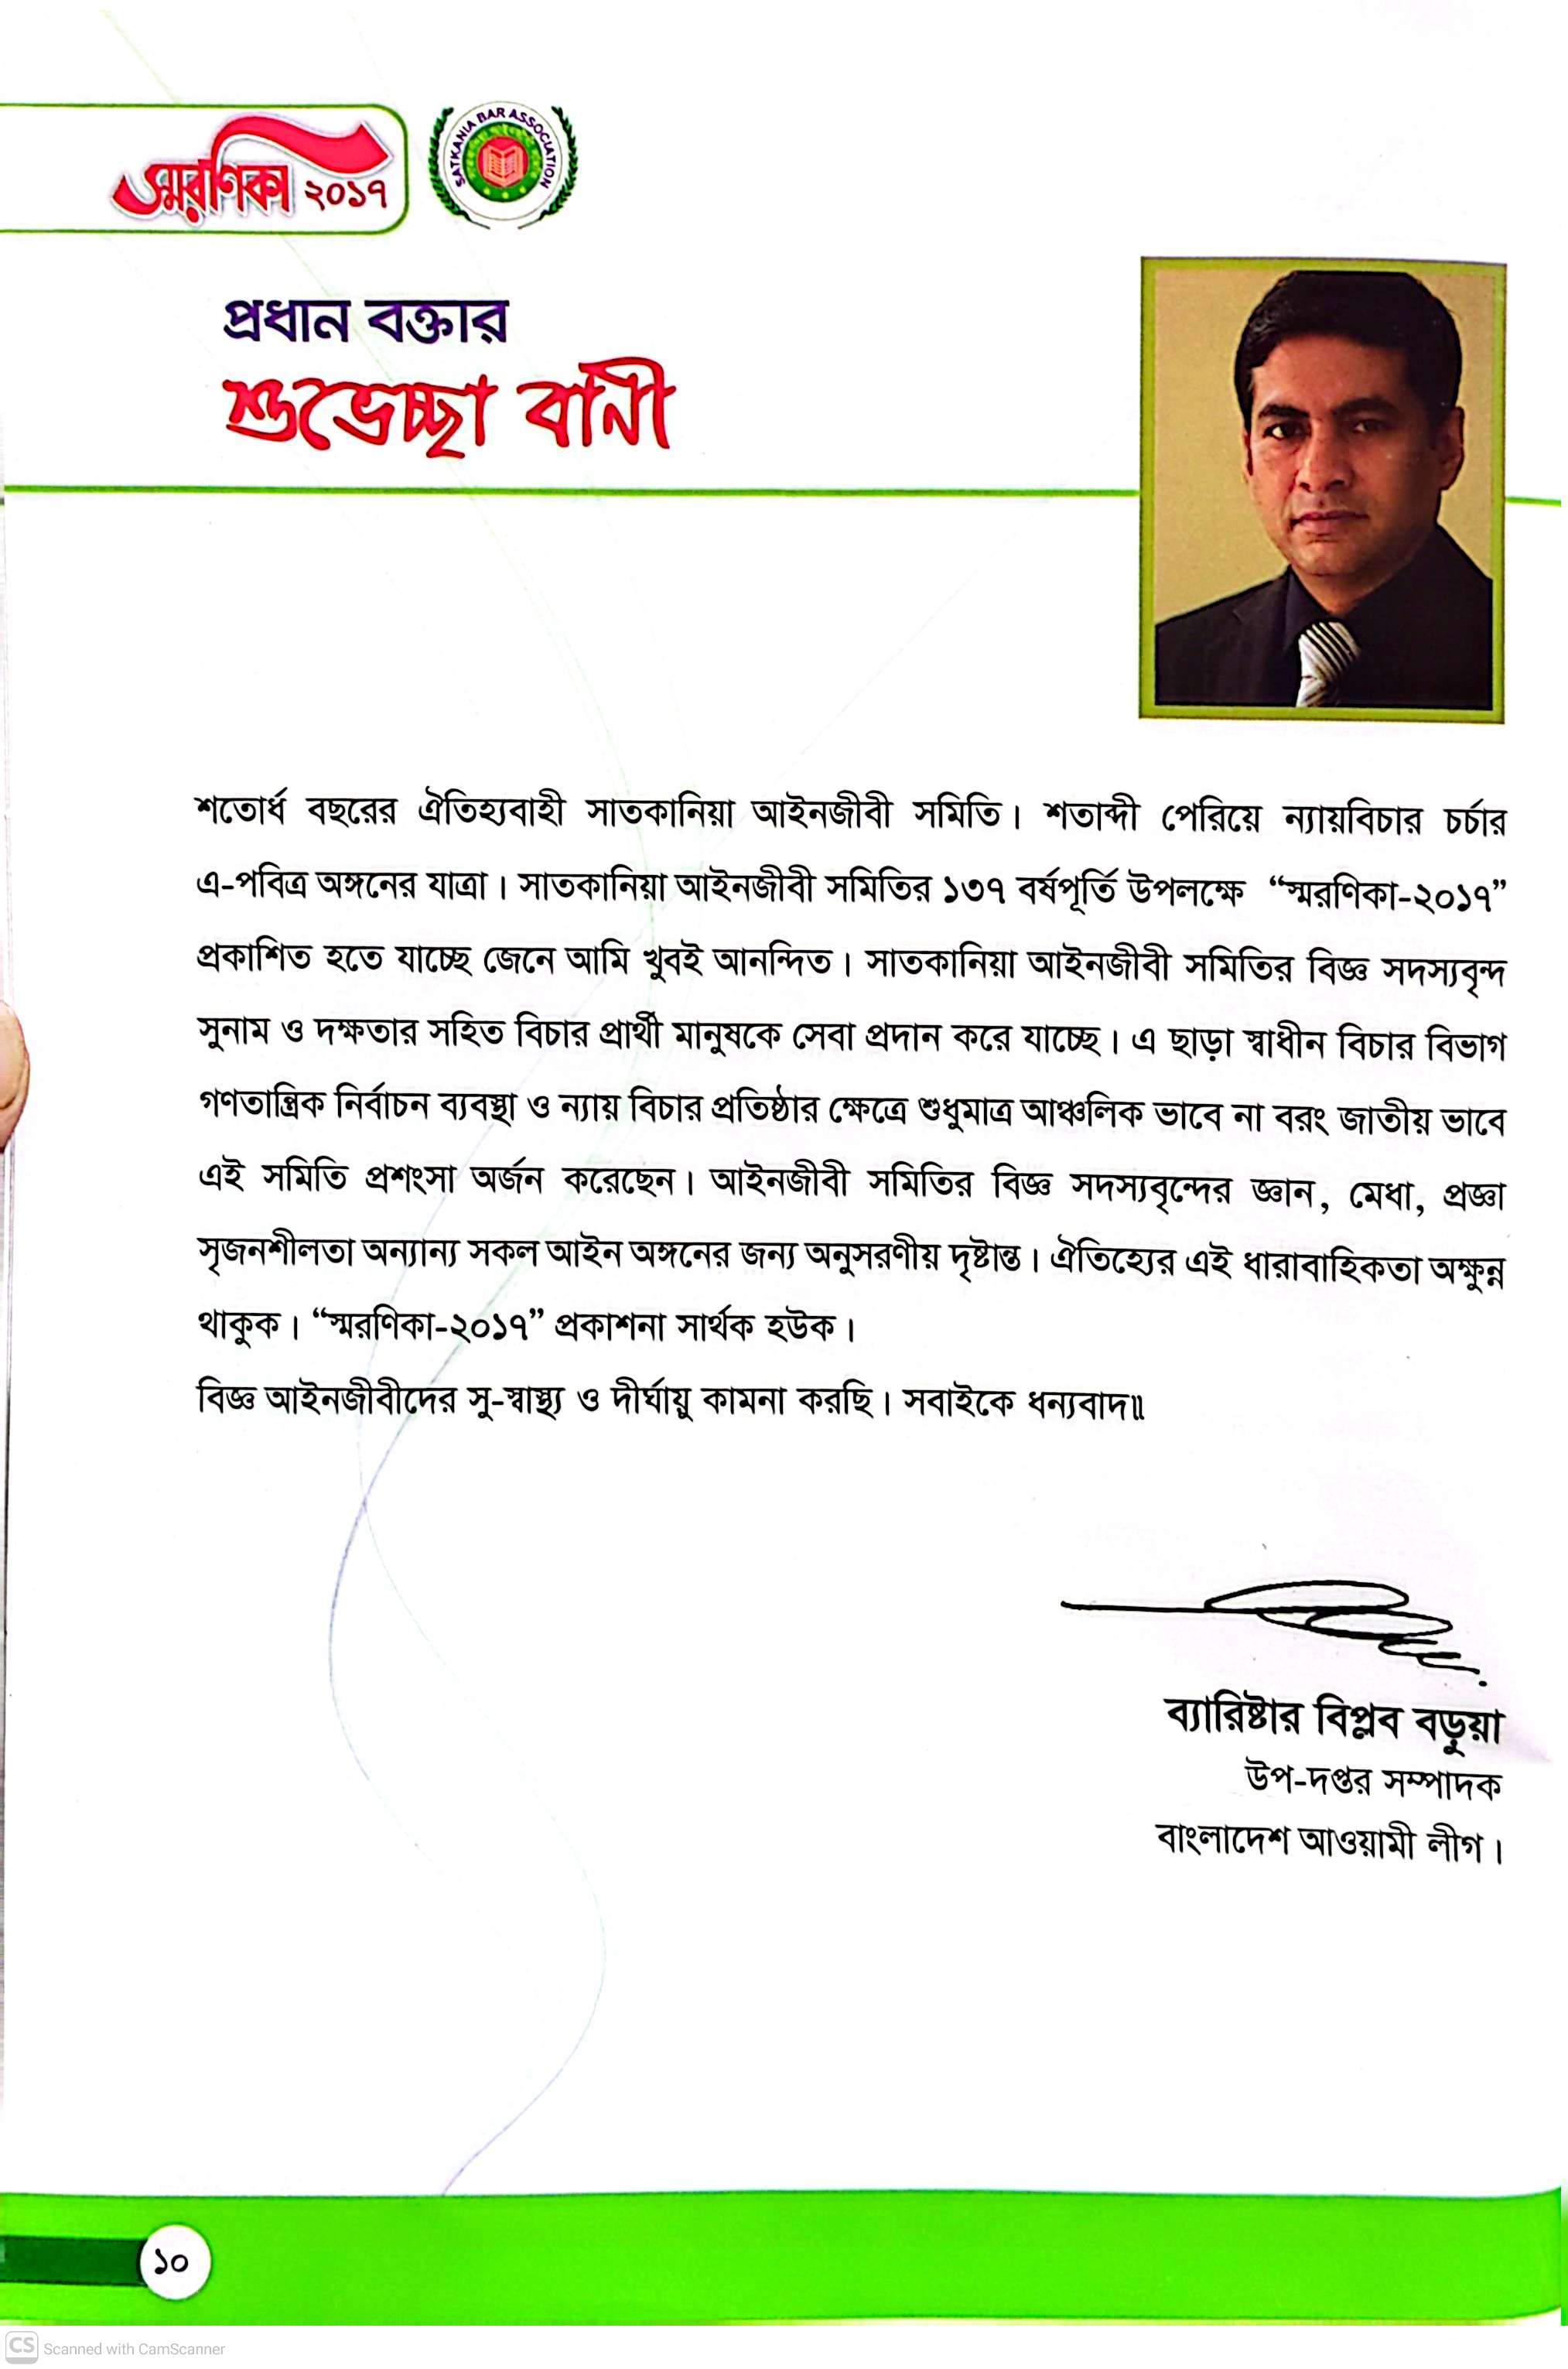 স্মরণিকা ২০১৭
SATKANIA BAR ASSOCIATION
প্রধান বক্তার
শুভেচ্ছা বানী
শতোর্ধ বছরের ঐতিহ্যবাহী সাতকানিয়া আইনজীবী সমিতি। শতাব্দী পেরিয়ে ন্যায়বিচার চর্চার
এ-পবিত্র অঙ্গনের যাত্রা। সাতকানিয়া আইনজীবী সমিতির ১৩৭ বর্ষপূর্তি উপলক্ষে “স্মরণিকা-২০১৭”
প্রকাশিত হতে যাচ্ছে জেনে আমি খুবই আনন্দিত। সাতকানিয়া আইনজীবী সমিতির বিজ্ঞ সদস্যবৃন্দ
সুনাম ও দক্ষতার সহিত বিচার প্রার্থী মানুষকে সেবা প্রদান করে যাচ্ছে। এ ছাড়া স্বাধীন বিচার বিভাগ
গণতান্ত্রিক নির্বাচন ব্যবস্থা ও ন্যায় বিচার প্রতিষ্ঠার ক্ষেত্রে শুধুমাত্র আঞ্চলিক ভাবে না বরং জাতীয় ভাবে
এই সমিতি প্রশংসা অর্জন করেছেন। আইনজীবী সমিতির বিজ্ঞ সদস্যবৃন্দের জ্ঞান, মেধা, প্রজ্ঞা
সৃজনশীলতা অন্যান্য সকল আইন অঙ্গনের জন্য অনুসরণীয় দৃষ্টান্ত। ঐতিহ্যের এই ধারাবাহিকতা অক্ষুন্ন
থাকুক। “স্মরণিকা-২০১৭” প্রকাশনা সার্থক হউক।
বিজ্ঞ আইনজীবীদের সু-স্বাস্থ্য ও দীর্ঘায়ু কামনা করছি। সবাইকে ধন্যবাদ॥
ব্যারিষ্টার বিপ্লব বড়ুয়া
উপ-দপ্তর সম্পাদক
বাংলাদেশ আওয়ামী লীগ।
১০
CS Scanned with CamScanner